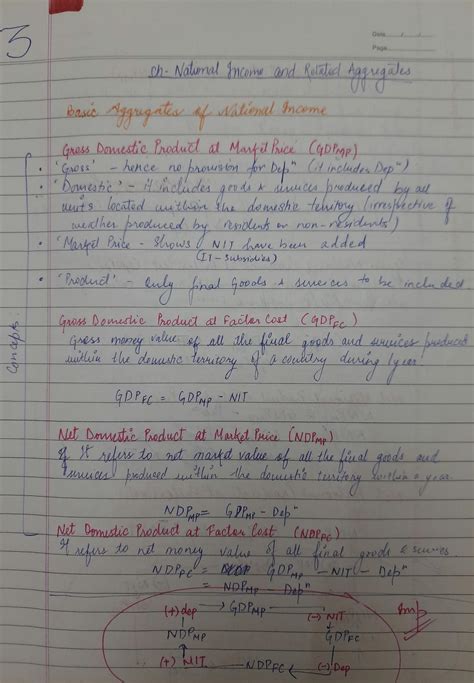 3
Date / /
Page
Ch- National Income and Related Aggregates
Basic Aggregates of National Income
Gross Domestic Product at Market Price (GDPMP)
• 'Gross' - hence no provision for Depⁿ (it includes Depⁿ)
• 'Domestic' - it includes goods & services produced by all
units located within the domestic territory (irrespective of
weather produced by residents or non-residents)
• 'Market Price - Shows NIT have been added
(IT-Subsidies)
• 'Product' - only final Goods & services to be included
Concepts
Gross Domestic Product at Factor Cost (GDPFC)
Gross money value of all the final goods and services produced
within the domestic territory of a country during 1 year.
GDPFC = GDPMP - NIT
Net Domestic Product at Market Price (NDPMP)
It refers to net market value of all the final goods and
services produced within the domestic territory within a year.
NDPMP = GDPMP - Depⁿ
Net Domestic Product at Factor Cost (NDPFC)
It refers to net money value of all final goods & services
NDPFC = GDPMP - NIT - Depⁿ
= NDPMP - Depⁿ
(+) dep → GDPMP (-) NIT
Imp
NDPMP GDPFC
(+) NIT NDPFC (-) Dep